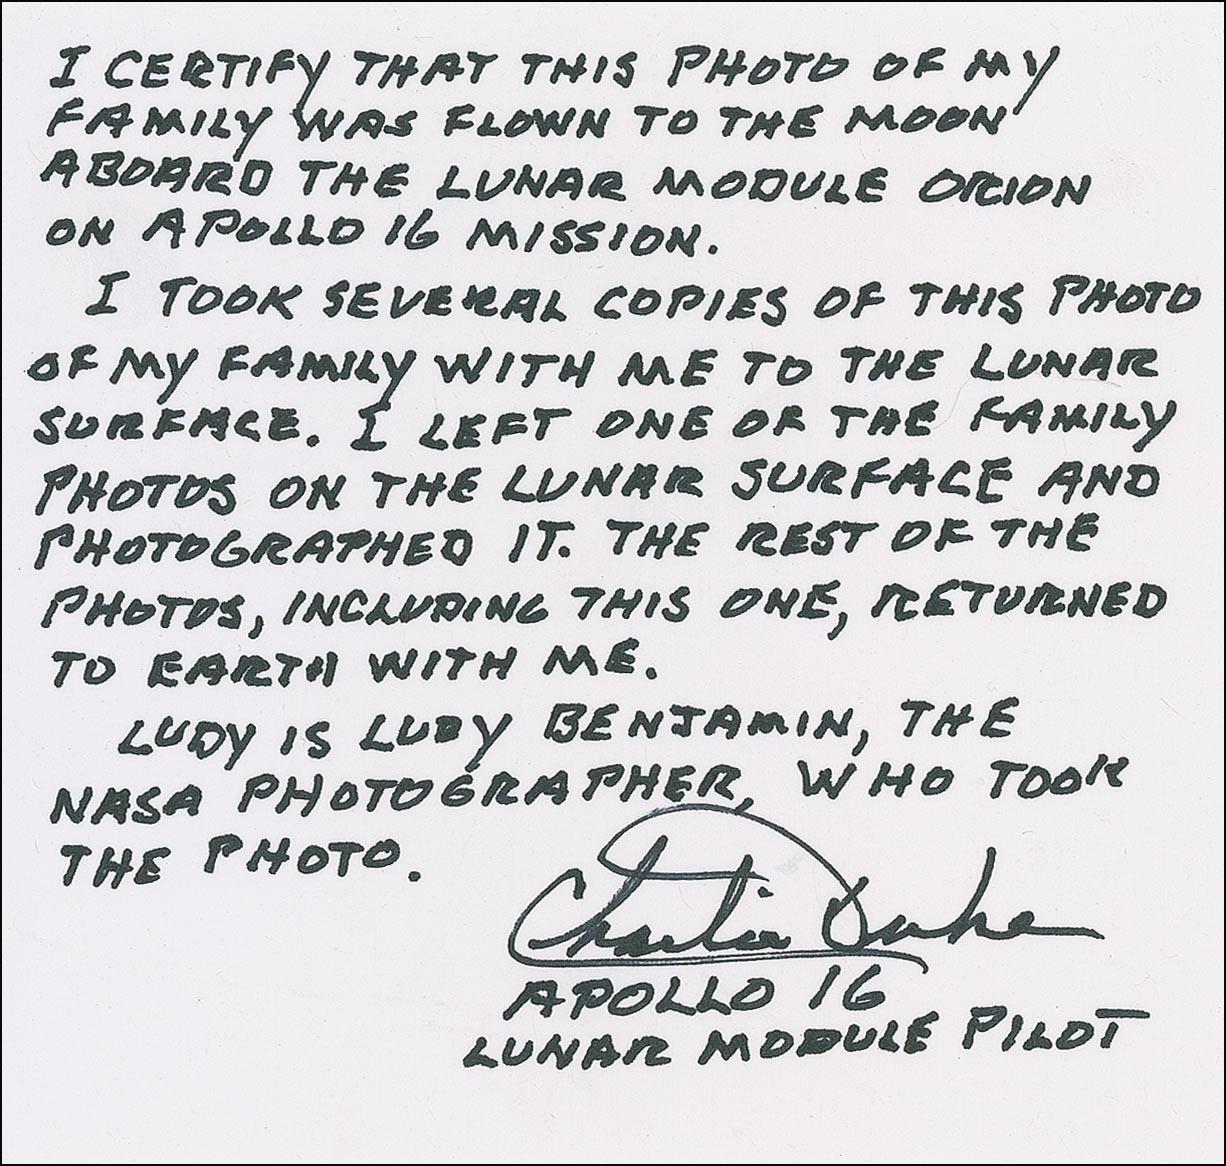 I CERTIFY THAT THIS PHOTO OF MY
FAMILY WAS FLOWN TO THE MOON
ABOARD THE LUNAR MODULE ORION
ON APOLLO 16 MISSION.
I TOOK SEVERAL COPIES OF THIS PHOTO
OF MY FAMILY WITH ME TO THE LUNAR
SURFACE. I LEFT ONE OF THE FAMILY
PHOTOS ON THE LUNAR SURFACE AND
PHOTOGRAPHED IT. THE REST OF THE
PHOTOS, INCLUDING THIS ONE, RETURNED
TO EARTH WITH ME.
LUDY IS LUDY BENJAMIN, THE
NASA PHOTOGRAPHER, WHO TOOK
THE PHOTO.
Charlie Duke
APOLLO 16
LUNAR MODULE PILOT